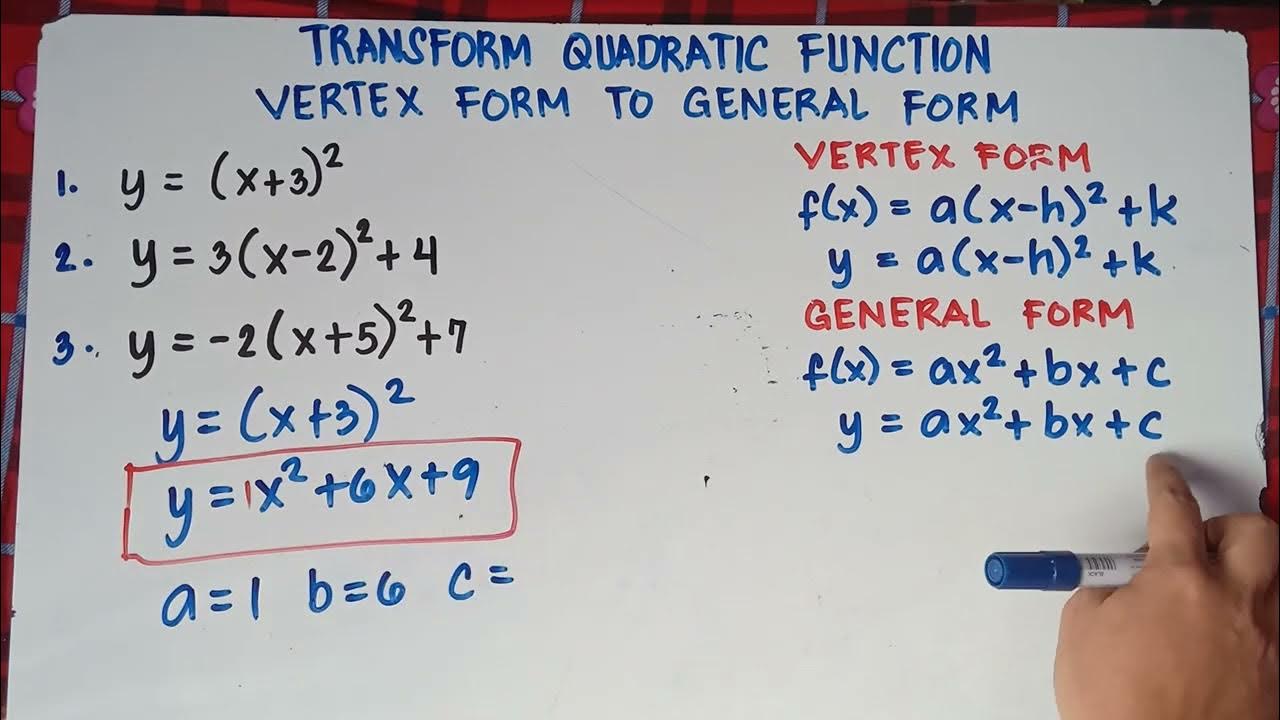 TRANSFORM QUADRATIC FUNCTION
VERTEX FORM TO GENERAL FORM
1. y = (x+3)²
2. y = 3(x-2)² + 4
3. y = -2(x+5)² + 7
y = (x+3)²
y = 1x² + 6x + 9
a = 1 b = 6 c =
VERTEX FORM
f(x) = a(x-h)² + k
y = a(x-h)² + k
GENERAL FORM
f(x) = ax² + bx + c
y = ax² + bx + c
BLACK